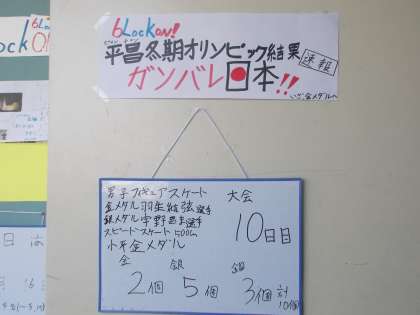 6Lock ON!
平昌冬期オリンピック結果
速報
ガンバレ日本!!
いざ金メダルへ
男子フィギュアスケート
金メダル羽生結弦選手
銀メダル宇野昌磨選手
スピードスケート500m
小平金メダル
大会
10日目
金 銀 銅
2個 5個 3個 計10個
Lock